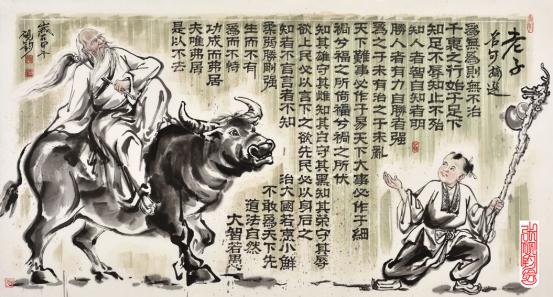 老子
名句摘選
為無為則無不治
千裏之行始于足下
知足不辱知止不殆
知人者智自知者明
勝人者有力自勝者強
為之于未有治之于未亂
天下難事必作于易天下大事必作于細
禍兮福之所倚福兮禍之所伏
知其雄守其雌知其白守其黑知其榮守其辱
欲上民必以言下之欲先民必以身后之
知者不言言者不知
柔弱勝剛強
生而不有
為而不恃
功成而弗居
夫唯弗居
是以不去
治大國若烹小鮮
不敢為天下先
道法自然
大智若愚